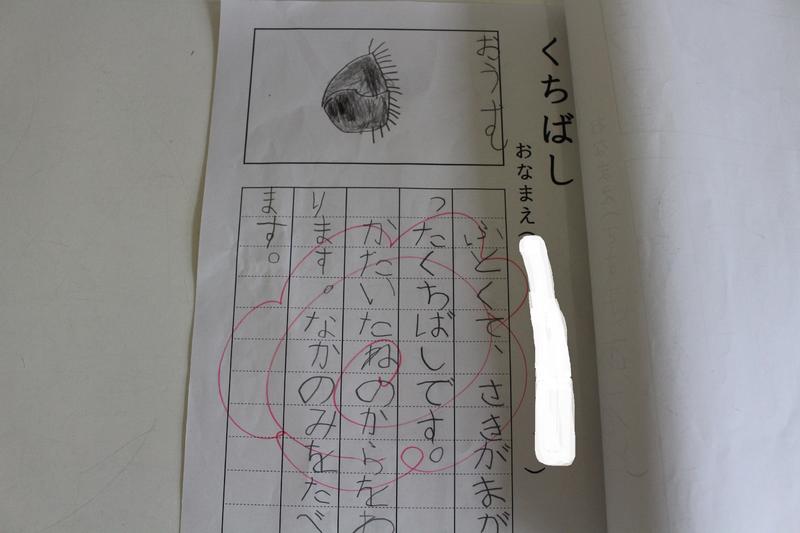 くちばし
おなまえ（　）
おうむ
ふとくて、さきがまが
ったくちばしです。
かたいたねのからをわ
ります。なかのみをたべ
ます。